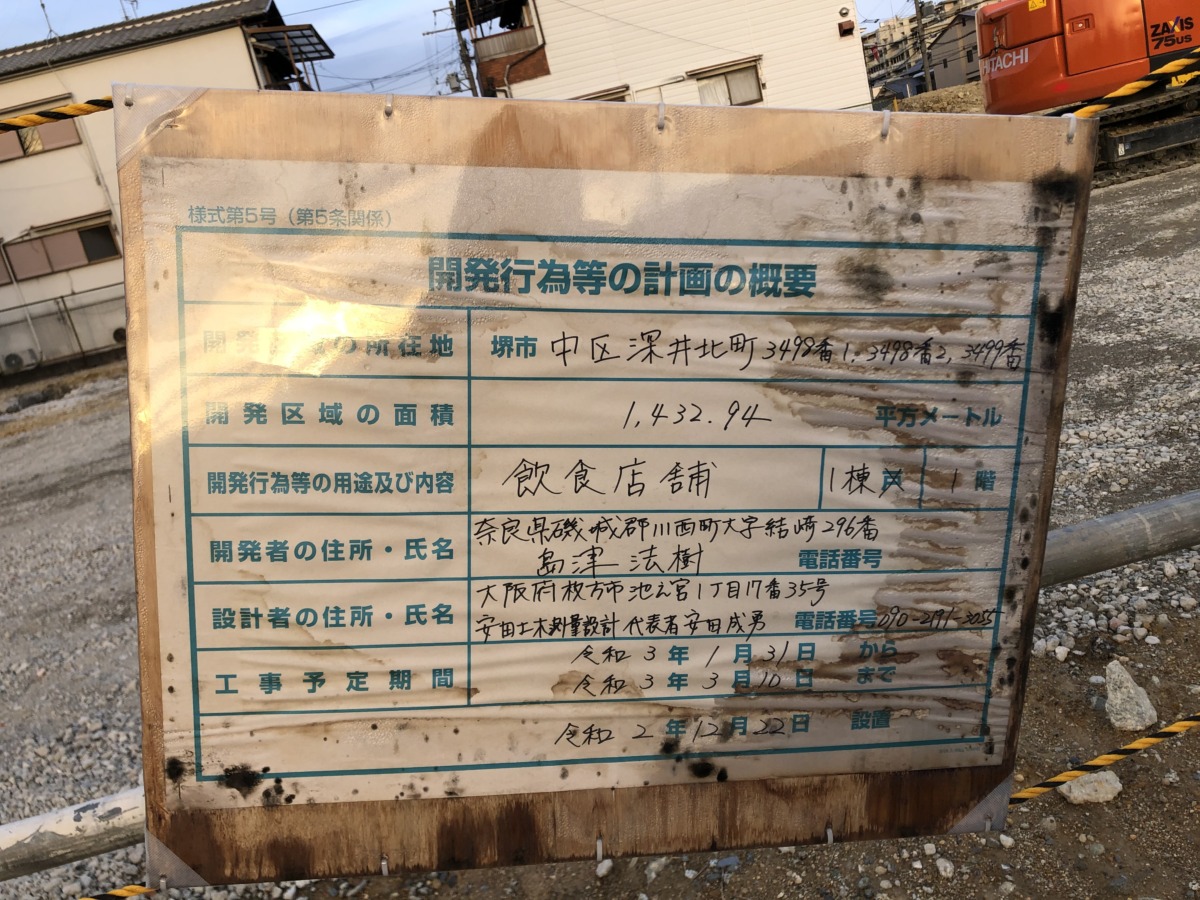 HITACHI
ZAXIS
75US
様式第5号（第5条関係）
開発行為等の計画の概要
開発 の所在地 堺市 中区深井北町3498番1, 3498番2, 3499番
開発区域の面積 1,432.94 平方メートル
開発行為等の用途及び内容 飲食店舗 1棟 1階
開発者の住所・氏名 奈良県磯城郡川西町大字結崎296番
島津法樹 電話番号
設計者の住所・氏名 大阪府枚方市池之宮1丁目17番35号
安田土木測量設計 代表者安田成勇 電話番号090-2191-3055
工事予定期間 令和3年1月31日から
令和3年3月10日まで
令和2年12月22日 設置